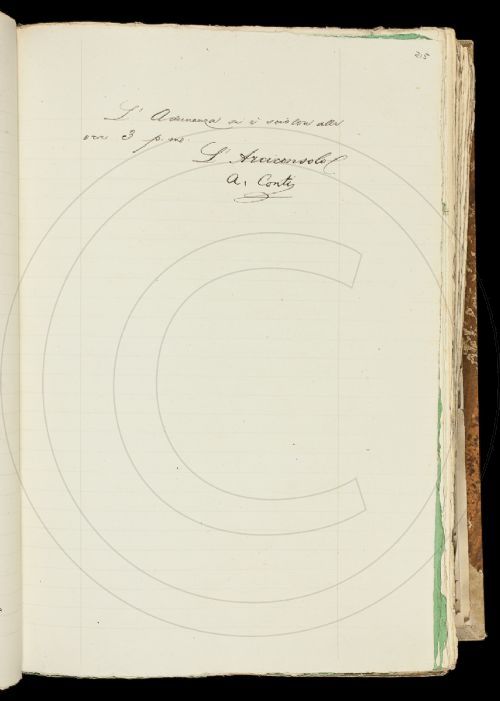 215
L'Adunanza si è sciolta alle
ore 3 p. m.
L'Arciconsolo
A. Conti